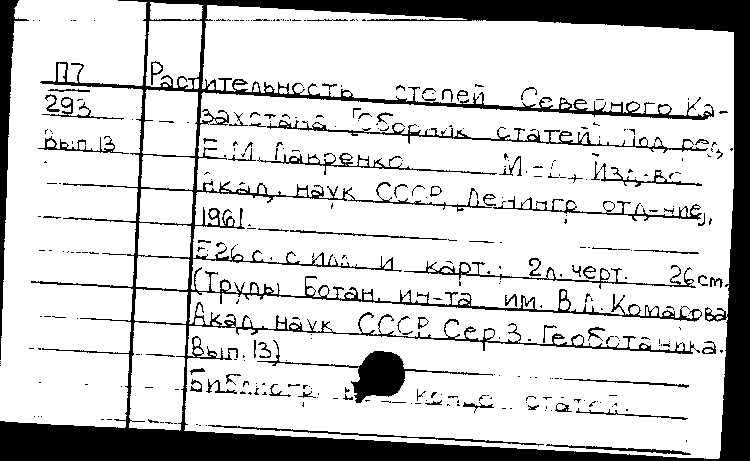 П7 Растительность степей Северного Ка-
293 захстана [Сборник статей]. Под ред.
Вып.13 Е.М. Лавренко. М.-Л., Изд-во
Акад. наук СССР, [Ленингр. отд-ние],
1961.
526 с. с илл. и карт.; 2л. черт. 26см.
(Труды Ботан. ин-та им. В.Л. Комарова
Акад. наук СССР. Сер.3. Геоботаника.
Вып.13)
Библиогр. в конце статей.